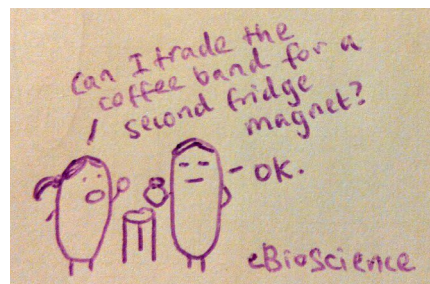 Can I trade the
coffee band for a
second fridge
magnet?
- OK.
eBioScience